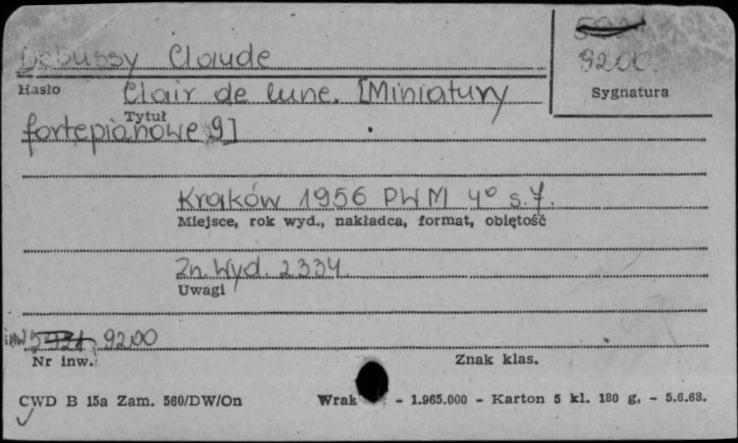 Debussy Claude
9200
Hasło
Sygnatura
Clair de lune. [Miniatury
Tytuł
fortepianowe 9]
Kraków 1956 PWM 4° s. 7.
Miejsce, rok wyd., nakładca, format, objętość
Zn. wyd. 2334
Uwagi
inw 9200
Nr inw.
Znak klas.
CWD B 15a Zam. 560/DW/On
Wrak - 1.965.000 - Karton 5 kl. 180 g. - 5.6.68.